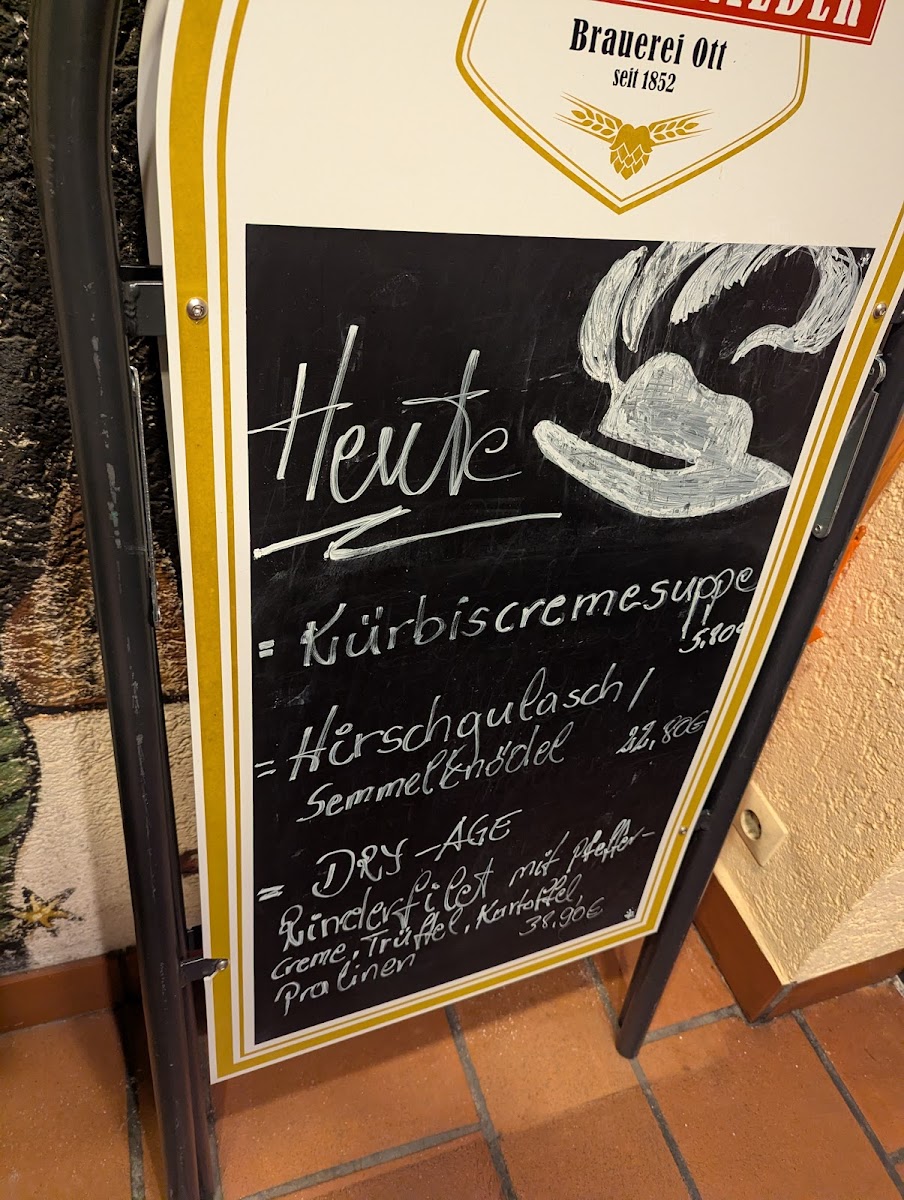 Brauerei Ott
seit 1852
Heute
= Kürbiscremesuppe
5,80€
= Hirschgulasch /
Semmelknödel 22,80€
= DRY-AGE
Rinderfilet mit Pfeffer-
creme, Trüffel, Kartoffel,
Pralinen 38,90€